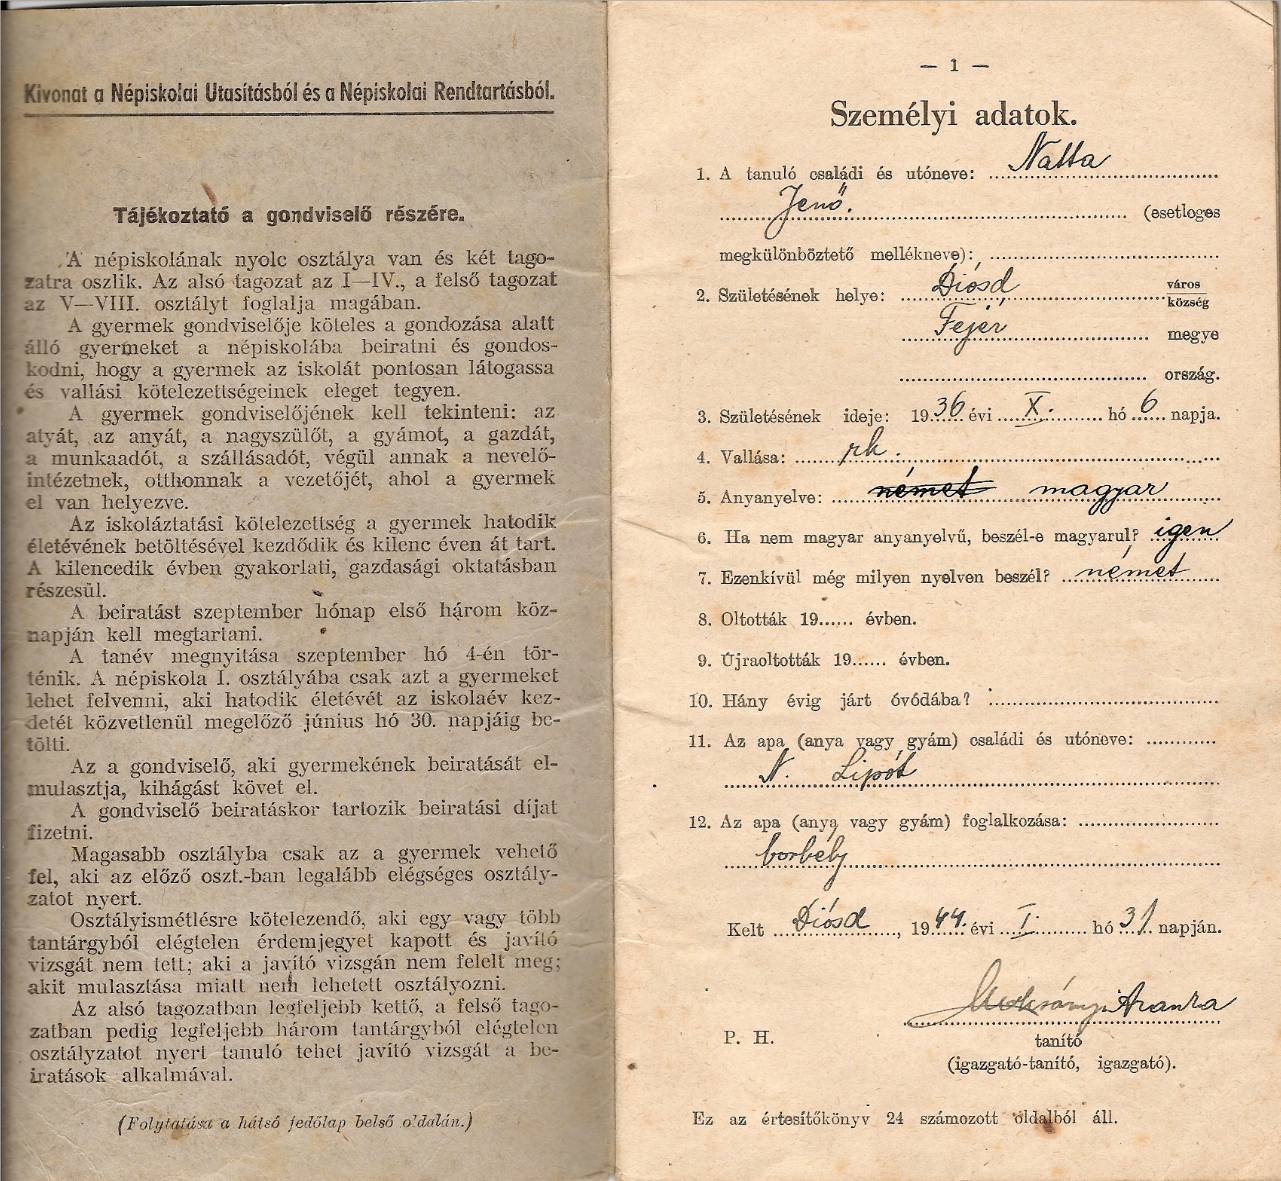 Kivonat a Népiskolai Utasításból és a Népiskolai Rendtartásból.
Tájékoztató a gondviselő részére.
A népiskolának nyolc osztálya van és két tago-
zatra oszlik. Az alsó tagozat az I—IV., a felső tagozat
az V—VIII. osztályt foglalja magában.
A gyermek gondviselője köteles a gondozása alatt
álló gyermeket a népiskolába beiratni és gondos-
kodni, hogy a gyermek az iskolát pontosan látogassa
és vallási kötelezettségeinek eleget tegyen.
A gyermek gondviselőjének kell tekinteni: az
atyát, az anyát, a nagyszülőt, a gyámot, a gazdát,
a munkaadót, a szállásadót, végül annak a nevelő-
intézetnek, otthonnak a vezetőjét, ahol a gyermek
el van helyezve.
Az iskoláztatási kötelezettség a gyermek hatodik
életévének betöltésével kezdődik és kilenc éven át tart.
A kilencedik évben gyakorlati, gazdasági oktatásban
részesül.
A beiratást szeptember hónap első három köz-
napján kell megtartani.
A tanév megnyitása szeptember hó 4-én tör-
ténik. A népiskola I. osztályába csak azt a gyermeket
lehet felvenni, aki hatodik életévét az iskolaév kez-
detét közvetlenül megelőző június hó 30. napjáig be-
tölti.
Az a gondviselő, aki gyermekének beiratását el-
mulasztja, kihágást követ el.
A gondviselő beiratáskor tartozik beiratási díjat
fizetni.
Magasabb osztályba csak az a gyermek vehető
fel, aki az előző oszt.-ban legalább elégséges osztály-
zatot nyert.
Osztályismétlésre kötelezendő, aki egy vagy több
tantárgyból elégtelen érdemjegyet kapott és javító
vizsgát nem tett; aki a javító vizsgán nem felelt meg;
akit mulasztása miatt nem lehetett osztályozni.
Az alsó tagozatban legfeljebb kettő, a felső tago-
zatban pedig legfeljebb három tantárgyból elégtelen
osztályzatot nyert tanuló tehet javító vizsgát a be-
iratások alkalmával.
(Folytatása a hátsó fedőlap belső oldalán.)
— 1 —
Személyi adatok.
1. A tanuló családi és utóneve: Natta
Jenő. (esetleges
megkülönböztető mellékneve):
2. Születésének helye: Diósd város
község
Fejér megye
ország.
3. Születésének ideje: 1936 évi X. hó 6 napja.
4. Vallása: rk.
5. Anyanyelve: német magyar
6. Ha nem magyar anyanyelvű, beszél-e magyarul? igen
7. Ezenkívül még milyen nyelven beszél? német
8. Oltották 19...... évben.
9. Újraoltották 19...... évben.
10. Hány évig járt óvódába?
11. Az apa (anya vagy gyám) családi és utóneve:
N. Lipót
12. Az apa (anya vagy gyám) foglalkozása:
borbély
Kelt Diósd, 1944. évi I. hó 31. napján.
Aranka
P. H. tanító
(igazgató-tanító, igazgató).
Ez az értesítőkönyv 24 számozott oldalból áll.